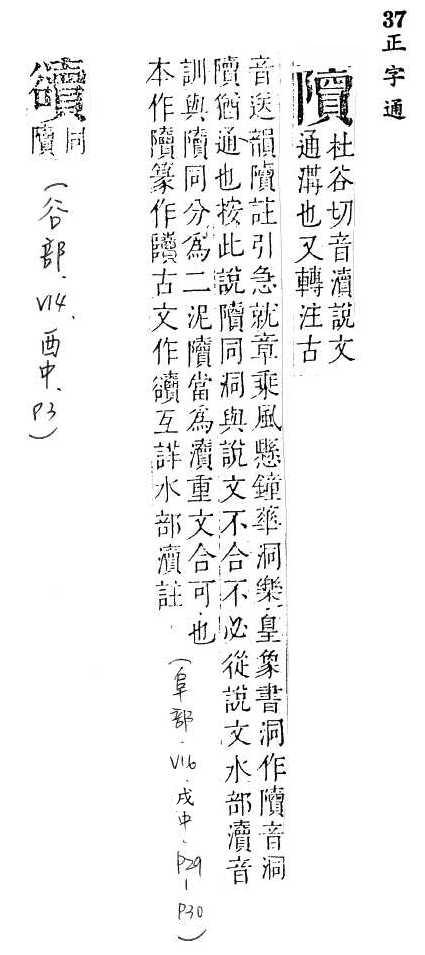 37正字通
𨽍
杜谷切音瀆說文
通溝也又轉注古
音送韻𨽍註引急就章乘風懸鐘華洞樂皇象書洞作𨽍音洞
𨽍猶通也按此說𨽍同洞與說文不合不必從說文水部瀆音
訓與𨽍同分為二泥𨽍當為瀆重文合可也
本作𨽍篆作𨽍古文作豄互詳水部瀆註
(阜部.V16.戌中.P29-P30)
豄
同
𨽍
(谷部.V14.酉中.P3)